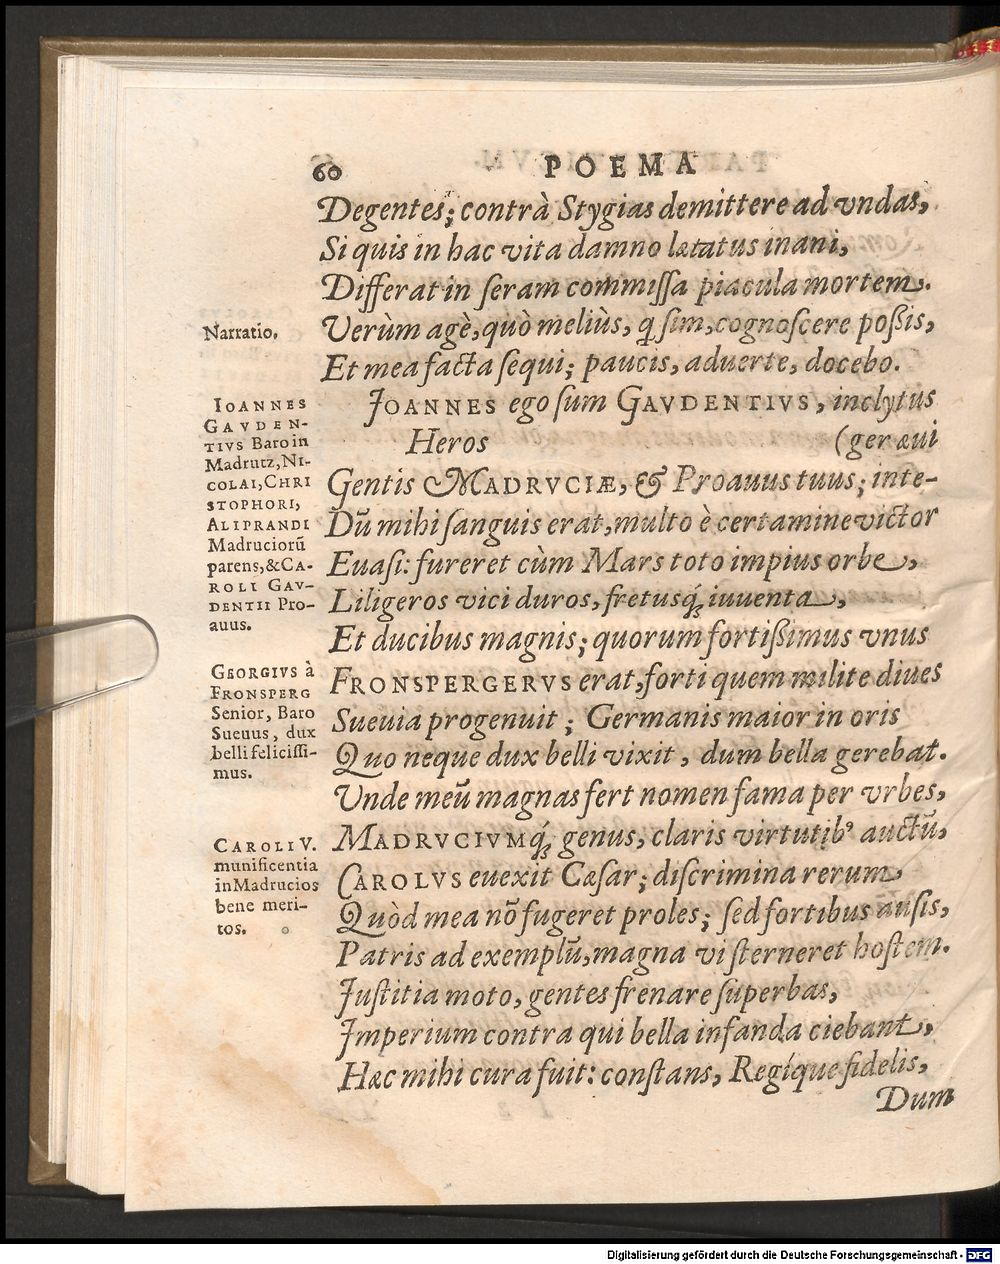 60 POEMA
Degentes; contrà Stygias demittere ad vndas,
Si quis in hac vita damno lætatus inani,
Differat in seram commissa piacula mortem.
Narratio.
Verùm agè, quò meliùs, q sim, cognoscere poßis,
Et mea facta sequi; paucis, aduerte, docebo.
IOANNES
GAVDEN-
TIVS Baro in
Madrutz, NI-
COLAI, CHRI
STOPHORI,
ALIPRANDI
Madruciorũ
parens, & CA-
ROLI GAV-
DENTII Pro-
auus.
IOANNES ego sum GAVDENTIVS, inclytus
Heros (ger æui
Gentis MADRVCIÆ, & Proauus tuus; inte-
Dũ mihi sanguis erat, multo è certamine victor
Euasi: fureret cùm Mars toto impius orbe,
Liligeros vici duros, fretusq́; iuuenta,
Et ducibus magnis; quorum fortißimus vnus
GEORGIVS à
FRONSPERG
Senior, Baro
Sueuus, dux
belli felicissi-
mus.
FRONSPERGERVS erat, forti quem milite diues
Sueuia progenuit; Germanis maior in oris
Quo neque dux belli vixit, dum bella gerebat.
Unde meũ magnas fert nomen fama per vrbes,
CAROLI V.
munificentia
in Madrucios
bene meri-
tos.
MADRVCIVMq́; genus, claris virtutibꝰ auctũ,
CAROLVS euexit Cæsar; discrimina rerum
Quòd mea nõ fugeret proles; sed fortibus ausis,
Patris ad exemplũ, magna vi sterneret hostem.
Iustitia moto, gentes frenare superbas,
Imperium contra qui bella infanda ciebant,
Hæc mihi cura fuit: constans, Regíque fidelis,
Dum
Digitalisierung gefördert durch die Deutsche Forschungsgemeinschaft - DFG